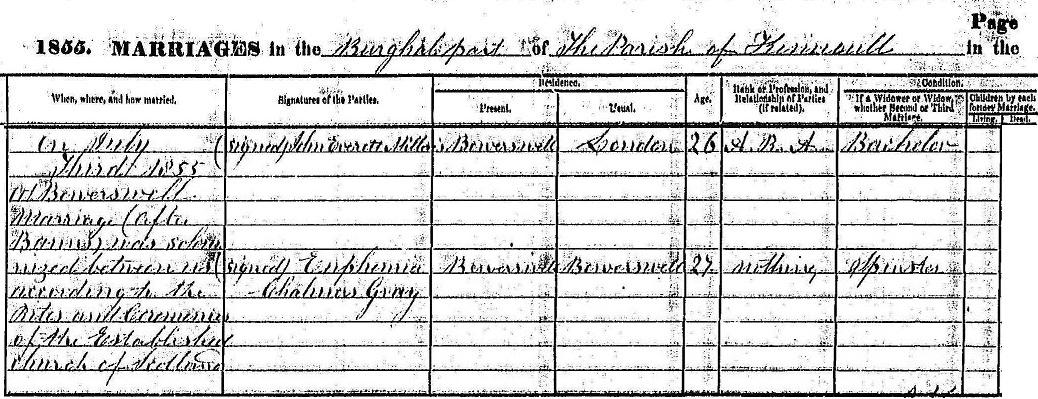 Page
1855. MARRIAGES in the Burghal part of The Parish of Kinnoull in the
Residence. Condition.
When, where, and how married. Signatures of the Parties. Present. Usual. Age. Rank or Profession, and Relationship of Parties (if related). If a Widower or Widow, whether Second or Third Marriage. Children by each former Marriage.
Living. Dead.
On July (signed) John Everett Millais Bowerswell London 26 A. R. A. Bachelor
Third 1855
At Bowerswell
Marriage (after
Banns) was solem
nized between us (signed) Euphemia Bowerswell Bowerswell 27 nothing Spinster
according to the Chalmers Gray
Rites and Ceremonies
of the Established
Church of Scotland